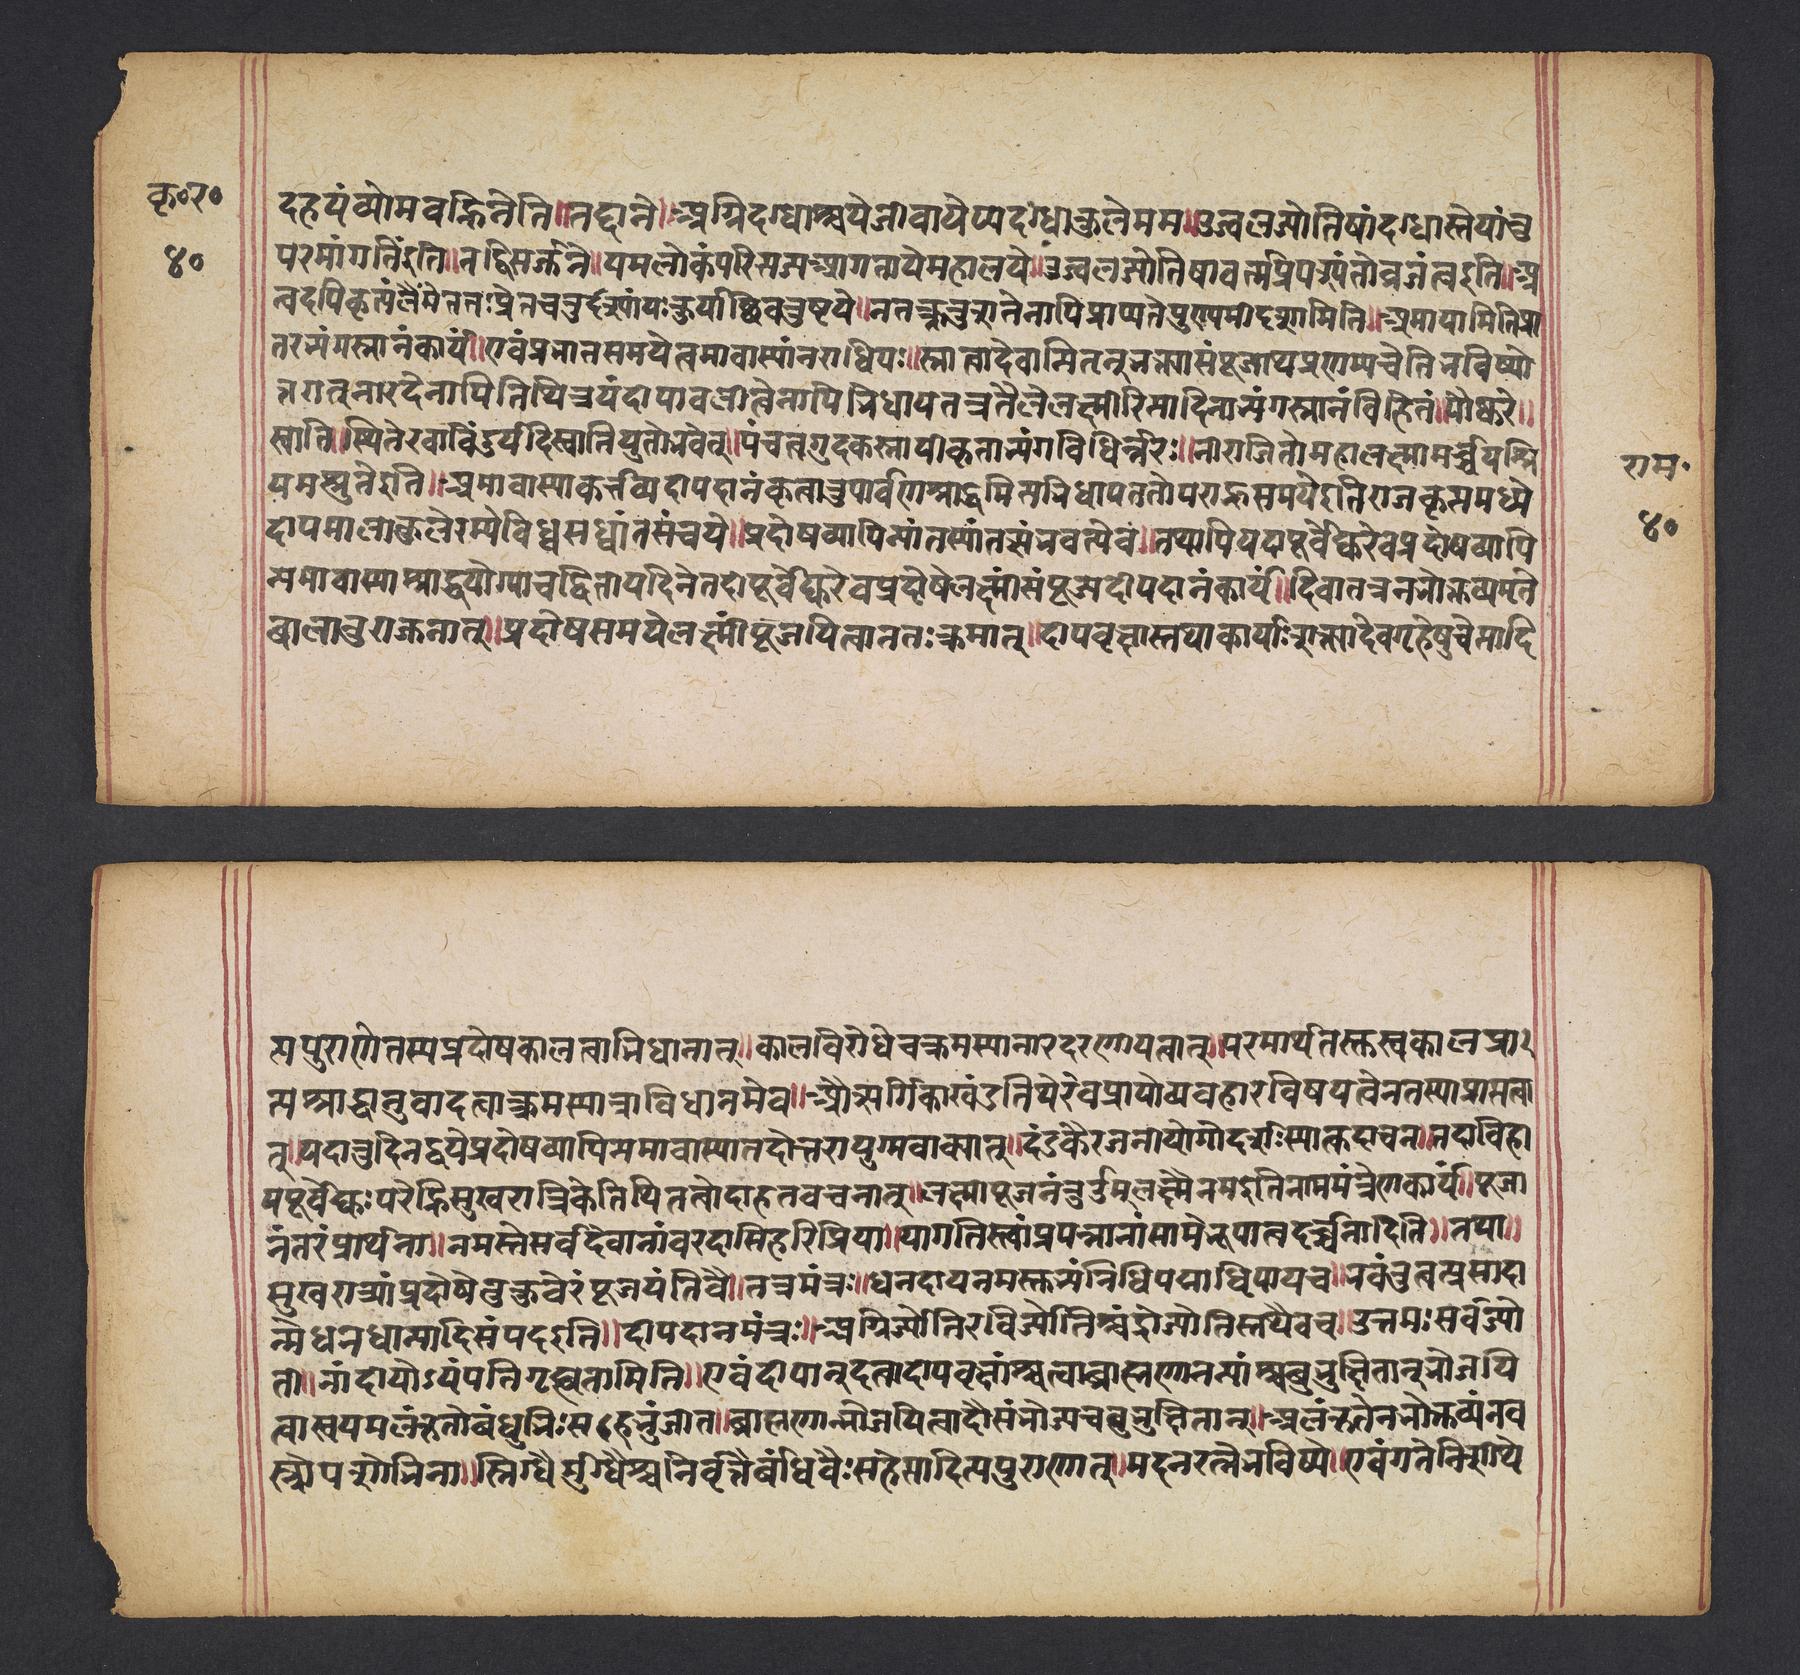 कृ॰र॰
४०
दहयंव्योमवह्निनेति॥तद्दाने॥अग्निदग्धाश्चयेजीवायेप्यदग्धाकुलेमम॥उज्वलज्योतिषांदग्धास्तेयांतु
परमांगतिंइति॥तद्विसर्जने॥यमलोकंपरित्यज्यआगतायेमहालये॥उज्वलज्योतिषावर्त्मप्रिपश्यंतोव्रजंत्वइति॥अ
त्वदपिकृत्यंलैंगेततःप्रेतचतुर्दश्यांयःकुर्याच्छिवतुष्टये॥नतत्क्रतुशतेनापिप्राप्यतेपुण्यमीदृशमिति॥अमायामितिप्रा
तरभ्यंगस्नानंकार्यं॥एवंप्रभातसमयेत्वमावास्यांनराधिपः॥स्नात्वादेवान्पितॄन्भक्त्यासंपूज्याथप्रणम्यचेतिभविष्यो
क्तगतत्नारदेनापितिथित्रयंदीपावलीत्वेनाभिधायतत्रतैलेलक्ष्मीरित्यादिनाभ्यंगस्नानंविहितं॥पौष्करे॥
स्वाति॥स्थितेरवाविंदुर्यदिस्वातियुतोभवेत्॥पंचत्वगुदकस्नायीकृताभ्यंगविधिर्न्नरः॥नीराजितोमहालक्ष्मीमर्च्चयन्श्रि
यमश्नुतेइति॥अमावास्याकर्त्तव्यदीपदानंकृत्वातुपार्वणश्राद्धमित्यभिधायततोपराह्नसमयेइतिराजकृत्यमध्ये
दीपमालाकुलेरम्येविध्वस्तध्वांतसंचये॥प्रदोषव्यापिन्यांतस्यांतत्संभवत्येवं॥तथापियदापूर्वेद्युरेवप्रदोषव्यापि
न्यमावास्याश्राद्धयोग्याचद्वितीयदिनेतदापूर्वेद्युरेवप्रदोषेलक्ष्मींसंपूज्यदीपदानंकार्यं॥दिवातत्रनभोक्तव्यमृते
बालातुराज्जनात्॥प्रदोषसमयेलक्ष्मींपूजयित्वाततःक्रमात्॥दीपवृक्षास्तथाकार्याःशक्त्यादेवगृहेषुचेत्यादि
राम॰
४०
त्यपुराणेतस्यप्रदोषकालत्वाभिधानात्॥कालविरोधेचक्रमस्यानारदरणीयत्वात्॥परमार्थतस्तुस्वकालप्रा
त्यश्राद्धानुवादत्वात्क्रमस्यात्राविधानमेव॥औत्सर्गिकाखंडतिथेरेवप्रायोव्यवहारविषयत्वेनतस्याप्राप्तत्वा
त्॥यदातुदिनद्वयेप्रदोषव्यापिन्यमावास्यातदोत्तरायुग्मवाक्यात्॥दंडकैरजनीयोगोदर्शःस्यात्कदाचन॥तदाविहा
यपूर्वेद्युःपरेह्निसुखरात्रिकेतितिथितत्वोदाहृतवचनात्॥लक्ष्मीपूजनंतुॐलक्ष्म्यैनमइतिनाममंत्रेणकार्यं॥पूजा
नंतरंप्रार्थना॥नमस्तेसर्वदेवानांवरदासिहरिप्रिया॥यागतिस्त्वांप्रपन्नानांसामेभूयात्वदर्च्चनादिति॥तथा॥
सुखरात्र्यांप्रदोषेतुकुबेरंपूजयंतिवै॥तत्रमंत्रः॥धनदायनमस्तुभ्यंनिधिपद्माधिपायच॥भवंतुत्वत्प्रसादा
न्मेधनधान्यादिसंपदइति॥दीपदानमंत्रः॥अग्निर्ज्योतिरविर्ज्योतिश्चंद्रोज्योतिस्तथैवच॥उत्तमःसर्वज्यो
ती॥नांदीपोऽयंपतिगृह्यतामिति॥एवंदीपान्दत्वादीपवृक्षांश्चत्वाब्राह्मणानन्यांश्चबुभुक्षितान्भोजयि
त्वास्वयमलंकृतोबंधुभिःसहभुंजीत॥ब्राह्मणान्भोजयित्वादौसंभोज्यचबुभुक्षितान्॥अलंकृतेनभोक्तव्यंनव
स्त्रोपशोभिना॥स्निग्धैर्मुग्धैश्चनिर्वृत्तैर्बांधवैःसहेत्यादित्यपुराणात्॥मदनरत्नेभविष्ये॥एवंगतेनिशीथे